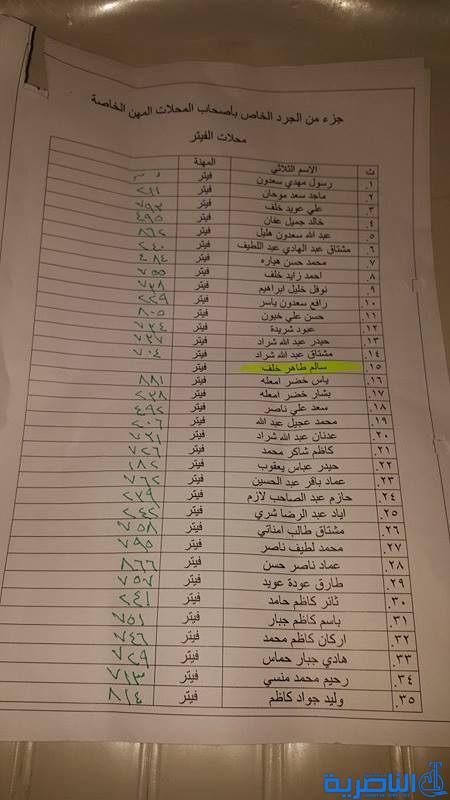 جزء من الجرد الخاص بأصحاب المحلات المهن الخاصة
محلات الفيتر
ت الاسم الثلاثي المهنة
١. رسول مهدي سعدون فيتر
٢. ماجد سعد موحان فيتر ٢٩١
٣. علي عويد خلف فيتر ٧٩٣
٤. خالد جميل عفان فيتر ٤٩٥
٥. عبد الله سعدون هليل فيتر ٨٦٢
٦. مشتاق عبد الهادي عبد اللطيف فيتر ٢٤٠
٧. محمد حسن هباره فيتر ٤٨٤
٨. احمد زايد خلف فيتر ٧٥٥
٩. نوفل خليل ابراهيم فيتر ٧٣٨
١٠. رافع سعدون ياسر فيتر ٢٣٩
١١. حسن علي خبون فيتر ٨٠٥
١٢. عبود شريدة فيتر ٧٣٤
١٣. حيدر عبد الله شراد فيتر ٧٣٧
١٤. مشتاق عبد الله شراد فيتر ٧٠٤
١٥. سالم طاهر خلف فيتر
١٦. ياس خضر امعله فيتر ٨٨١
١٧. بشار خضر امعله فيتر ٢٣٨
١٨. سعد علي ناصر فيتر ٤٩٢
١٩. محمد عجيل عبد الله فيتر ٢٠٦
٢٠. عدنان عبد الله شراد فيتر ٧٣١
٢١. كاظم شاكر محمد فيتر ٧٢٦
٢٢. حيدر عباس يعقوب فيتر ١٨٢
٢٣. عماد باقر عبد الحسين فيتر ٧٦٢
٢٤. حازم عبد الصاحب لازم فيتر ٢٣٩
٢٥. اياد عبد الرضا شري فيتر ٢٤٢
٢٦. مشتاق طالب امناتي فيتر ٧٥٨
٢٧. محمد لطيف ناصر فيتر ٧٩٥
٢٨. عماد ناصر حسن فيتر ٨٦٦
٢٩. طارق عودة عويد فيتر ٧٥٧
٣٠. ثائر كاظم حامد فيتر ٢٤١
٣١. باسم كاظم جبار فيتر ٧٥١
٣٢. اركان كاظم محمد فيتر ٧٤٦
٣٣. هادي جبار حماس فيتر ٧٢٩
٣٤. رحيم محمد منسي فيتر ٧١٣
٣٥. وليد جواد كاظم فيتر ٨١٤
الناصرية